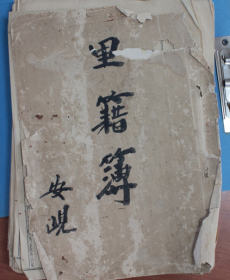 里籍簿
安峴